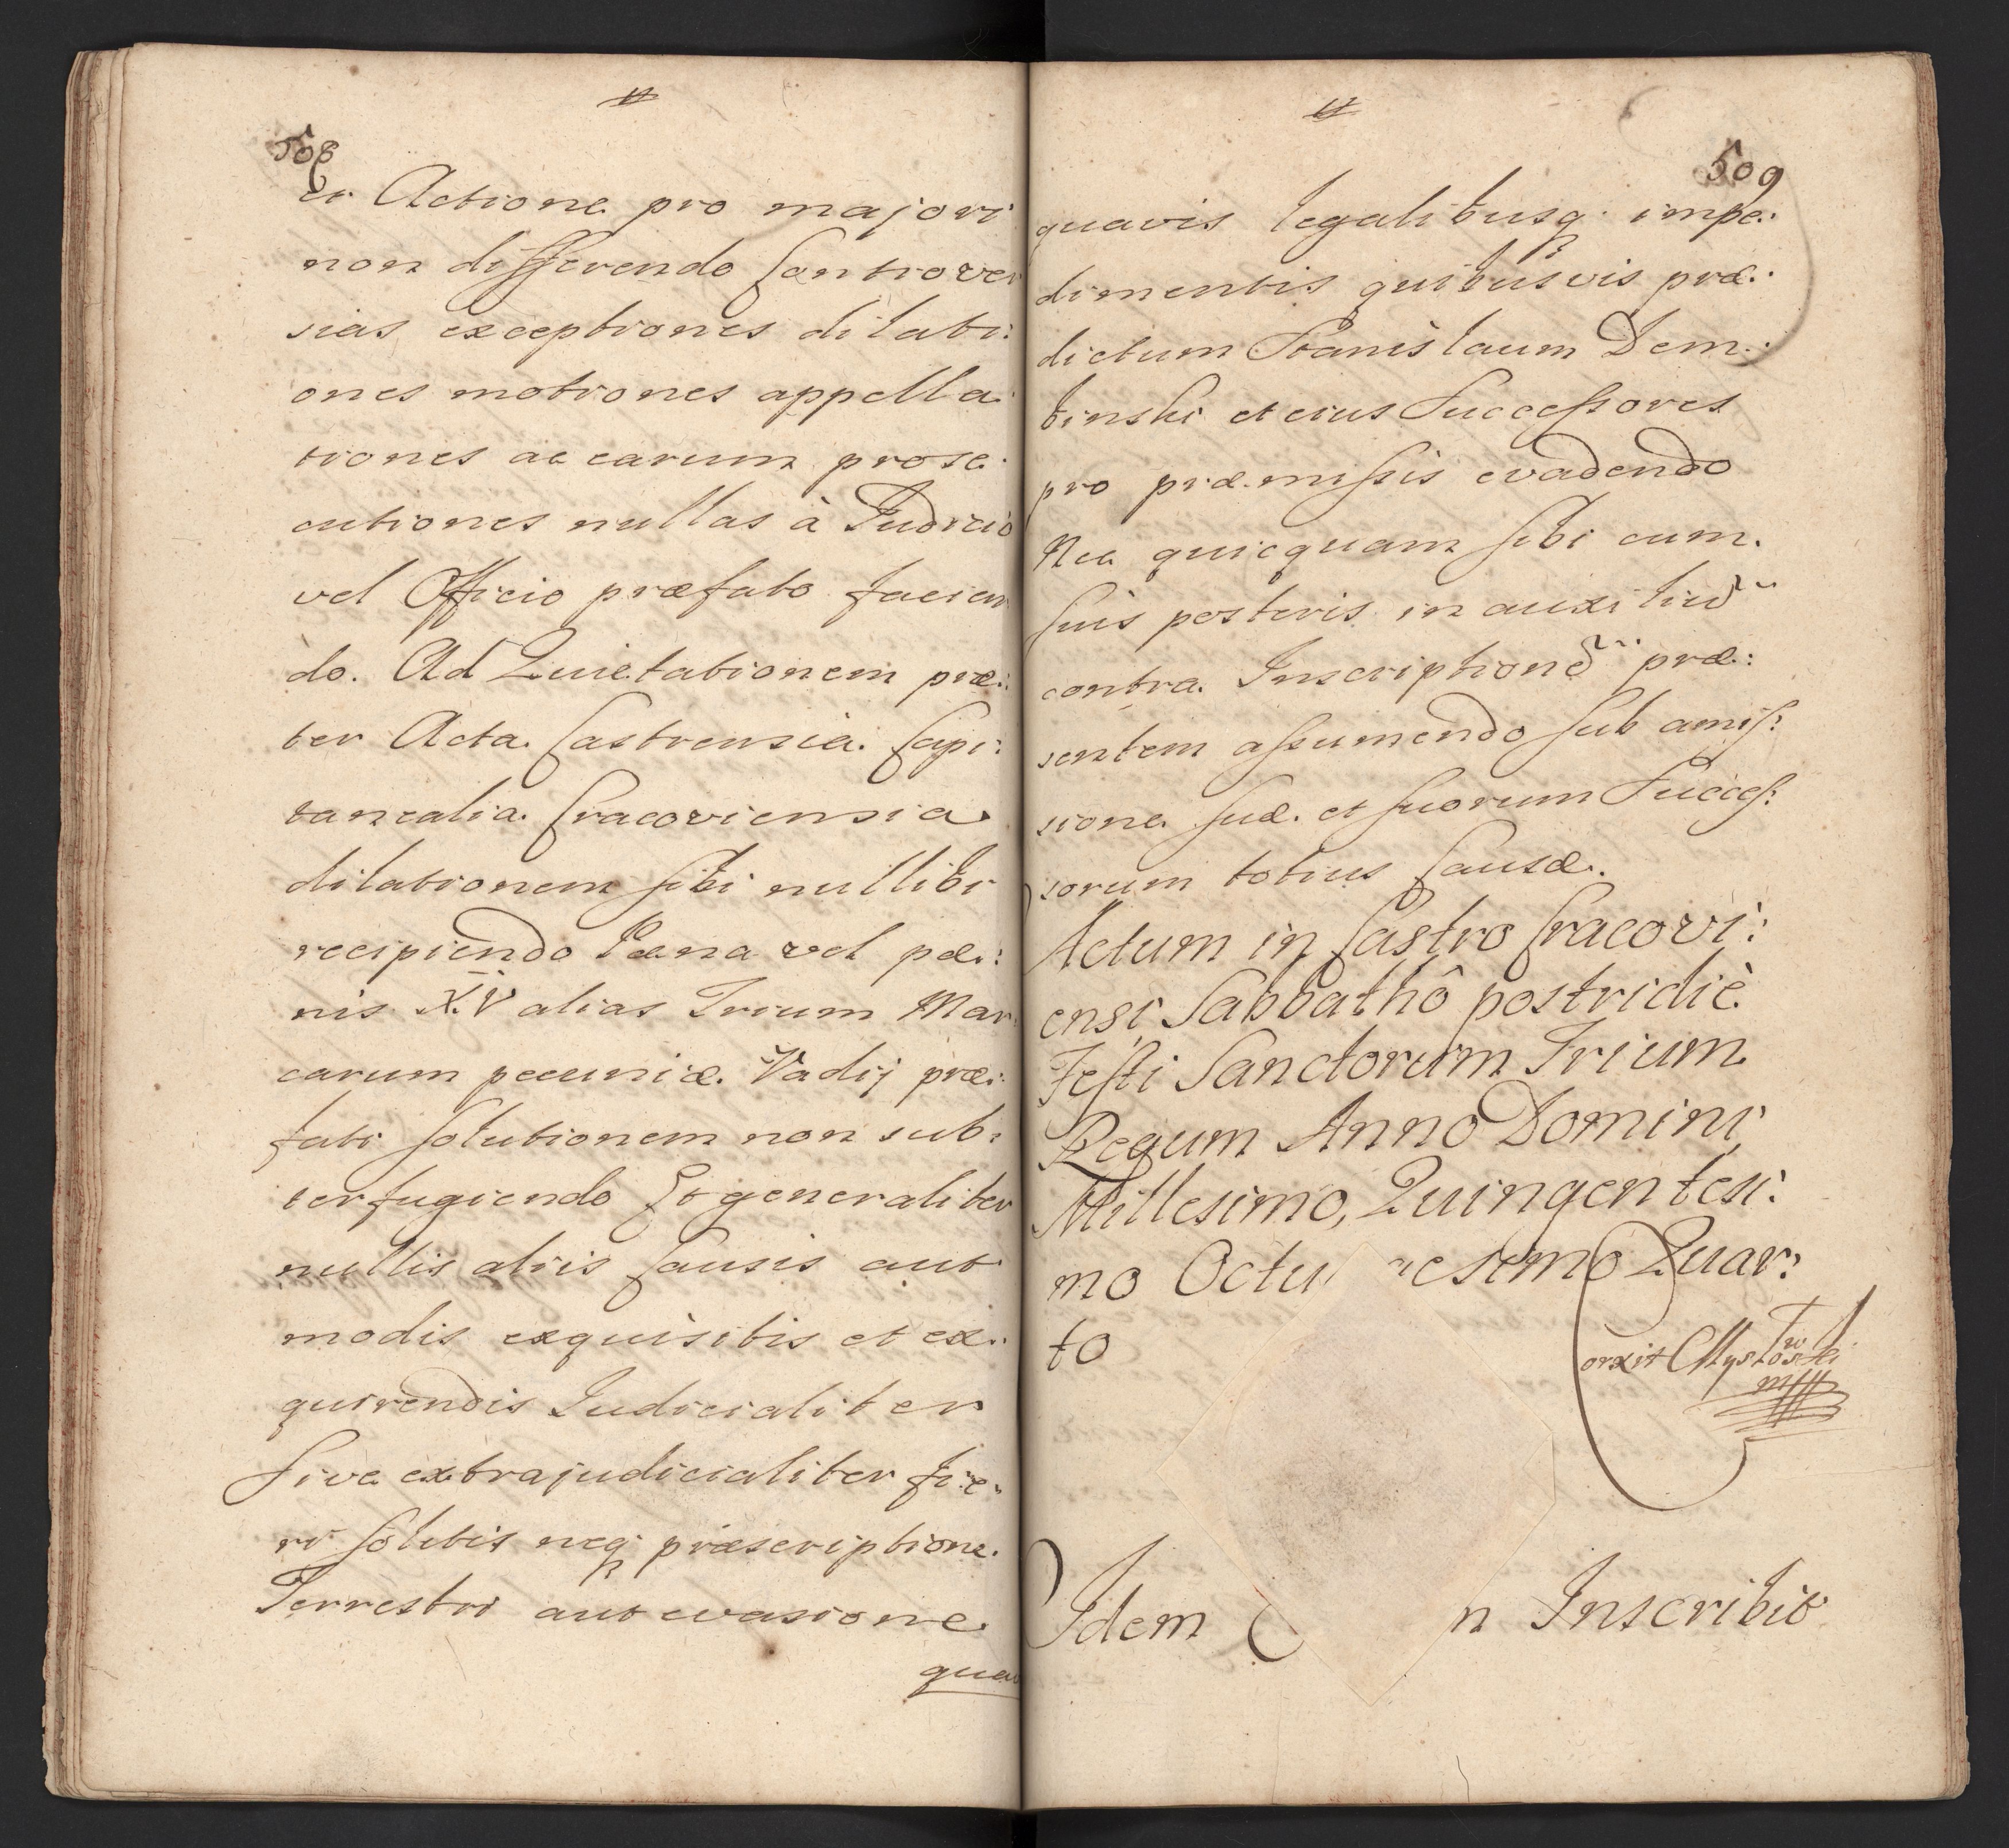 508
et Actione pro majori
non differendo Controver
sias exceptiones dilati:
ones motiones appella:
tiones ac earum prose:
cutiones nullas à Judicio
vel Officio præfato facien
do. Ad Quietationem præ:
ter Acta Castrensia Capi:
tanealia Cracoviensia
dilationem sibi nullibi
recipiendo Pæna vel pæ:
nis XV alias Trium Mar:
carum pecuniæ. Vadij præ:
fati solutionem non sub:
terfugiendo Et generaliter
nullis aliis Causis aut
modis exquisitis et ex:
quirendis Judicialiter
Sive extrajudicialiter fie:
ri solitis neq; præscriptione
Terrestri aut evasione
quav
509
quavis legalibusq; impe:
dimentis quibusvis præ:
dictum Stanislaum Dem:
binski et eius Successores
pro præmissis evadendo
Nec quicquam sibi cum
suis posteris in auxiliũ
contra Inscriptionẽ præ:
sentem assumendo sub amis:
sione suæ et suorum Succes:
sorum totius Causæ.
Actum in Castro Cracovi:
ensi Sabbathô postridiè
Festi Sanctorum Trium
Regum Anno Domini
Millesimo, Quingentesi:
mo Octu gesimo Quar:
to
Idem n Inscribit